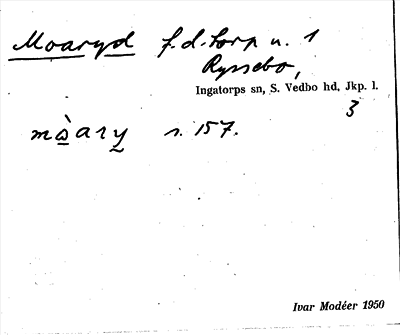 Moaryd f.d. torp u. 1
Ryssebo,
Ingatorps sn, S. Vedbo hd, Jkp. l.
3
mò̲ary̰ s. 157.
Ivar Modéer 1950